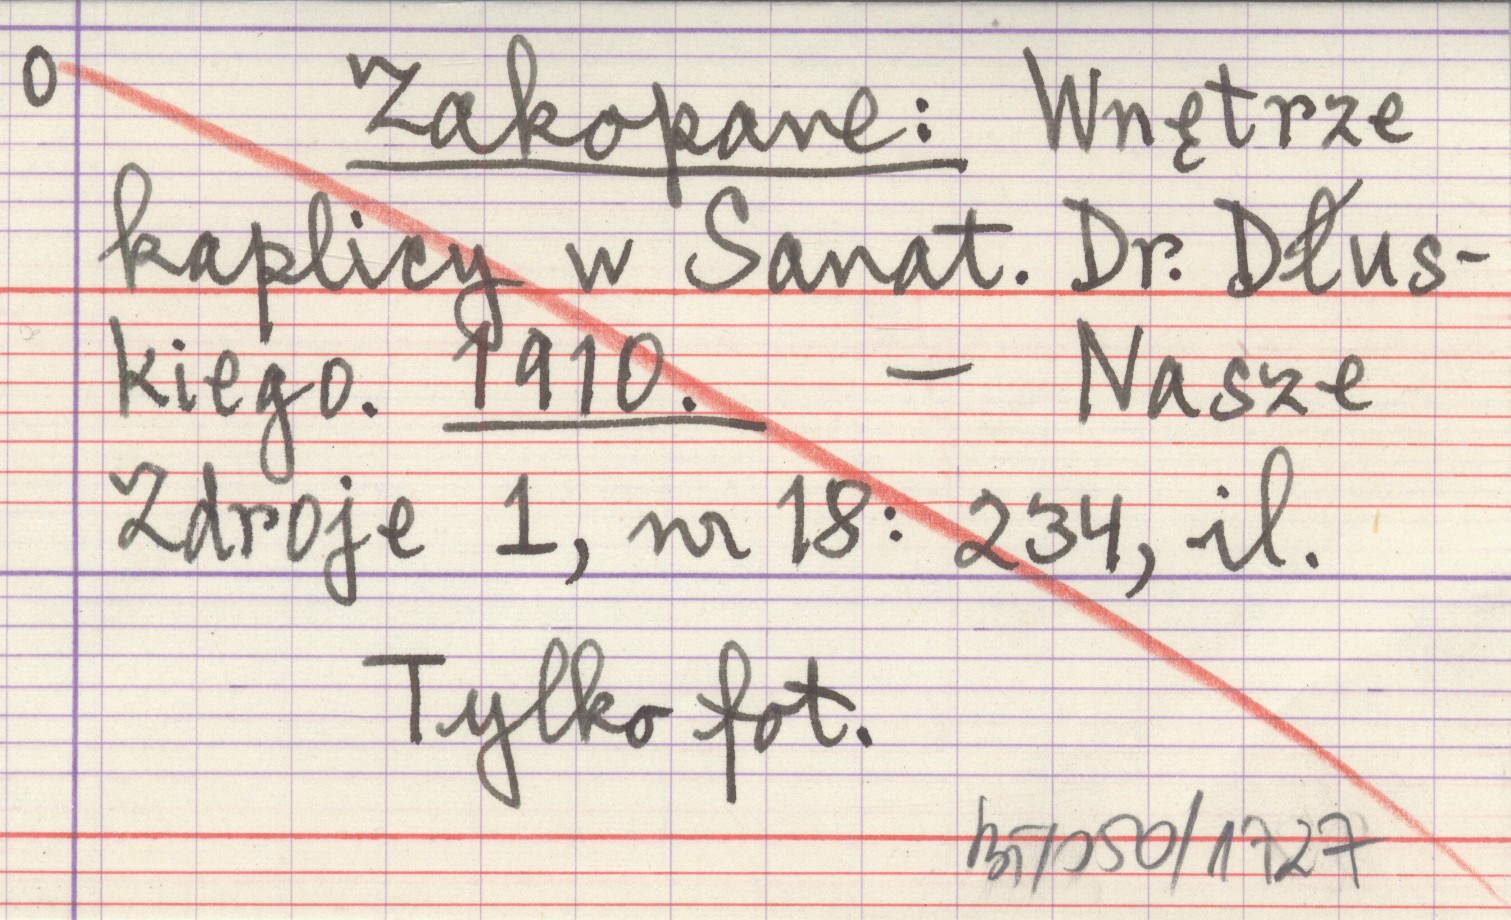 0 Zakopane: Wnętrze
kaplicy w Sanat. Dr. Dłus-
kiego. 1910. – Nasze
Zdroje 1, nr 18: 234, il.
Tylko fot.